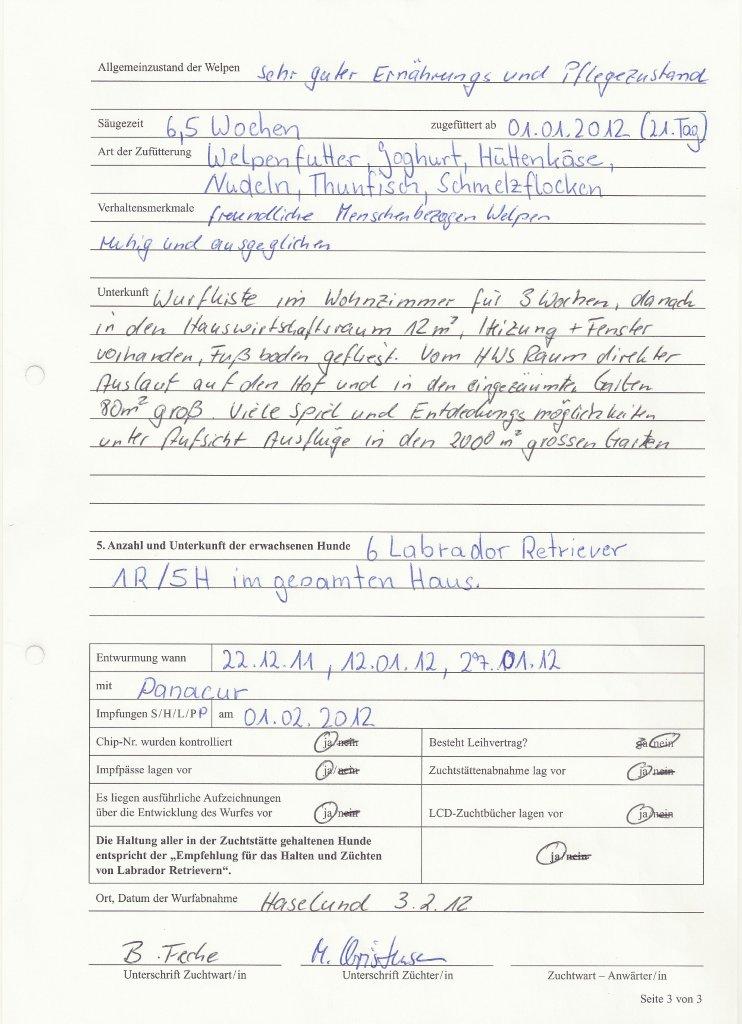 Allgemeinzustand der Welpen sehr guter Ernährungs und Pflegezustand
Säugezeit 6,5 Wochen zugefüttert ab 01.01.2012 (21.Tag)
Art der Zufütterung Welpenfutter, Joghurt, Hüttenkäse,
Nudeln, Thunfisch, Schmelzflocken
Verhaltensmerkmale freundliche Menschenbezogen Welpen
ruhig und ausgeglichen
Unterkunft Wurfkiste im Wohnzimmer für 3 Wochen, danach
in den Hauswirtschaftsraum 12m², Heizung + Fenster
vorhanden, Fußboden gefliest. Vom HWS Raum direkter
Auslauf auf den Hof und in den eingezäunten Garten
80m² groß. Viele Spiel und Entdeckungsmöglichkeiten
unter Aufsicht Ausflüge in den 2000 m² grossen Garten
5. Anzahl und Unterkunft der erwachsenen Hunde 6 Labrador Retriever
1R/5H im gesamten Haus.
Entwurmung wann 22.12.11, 12.01.12, 27.01.12
mit Panacur
Impfungen S/H/L/PP am 01.02.2012
Chip-Nr. wurden kontrolliert ja/nein Besteht Leihvertrag? ja/nein
Impfpässe lagen vor ja/nein Zuchtstättenabnahme lag vor ja/nein
Es liegen ausführliche Aufzeichnungen
über die Entwicklung des Wurfes vor ja/nein LCD-Zuchtbücher lagen vor ja/nein
Die Haltung aller in der Zuchtstätte gehaltenen Hunde
entspricht der „Empfehlung für das Halten und Züchten
von Labrador Retrievern“. ja/nein
Ort, Datum der Wurfabnahme Haselund 3.2.12
B. Feche M.
Unterschrift Zuchtwart/in Unterschrift Züchter/in Zuchtwart – Anwärter/in
Seite 3 von 3